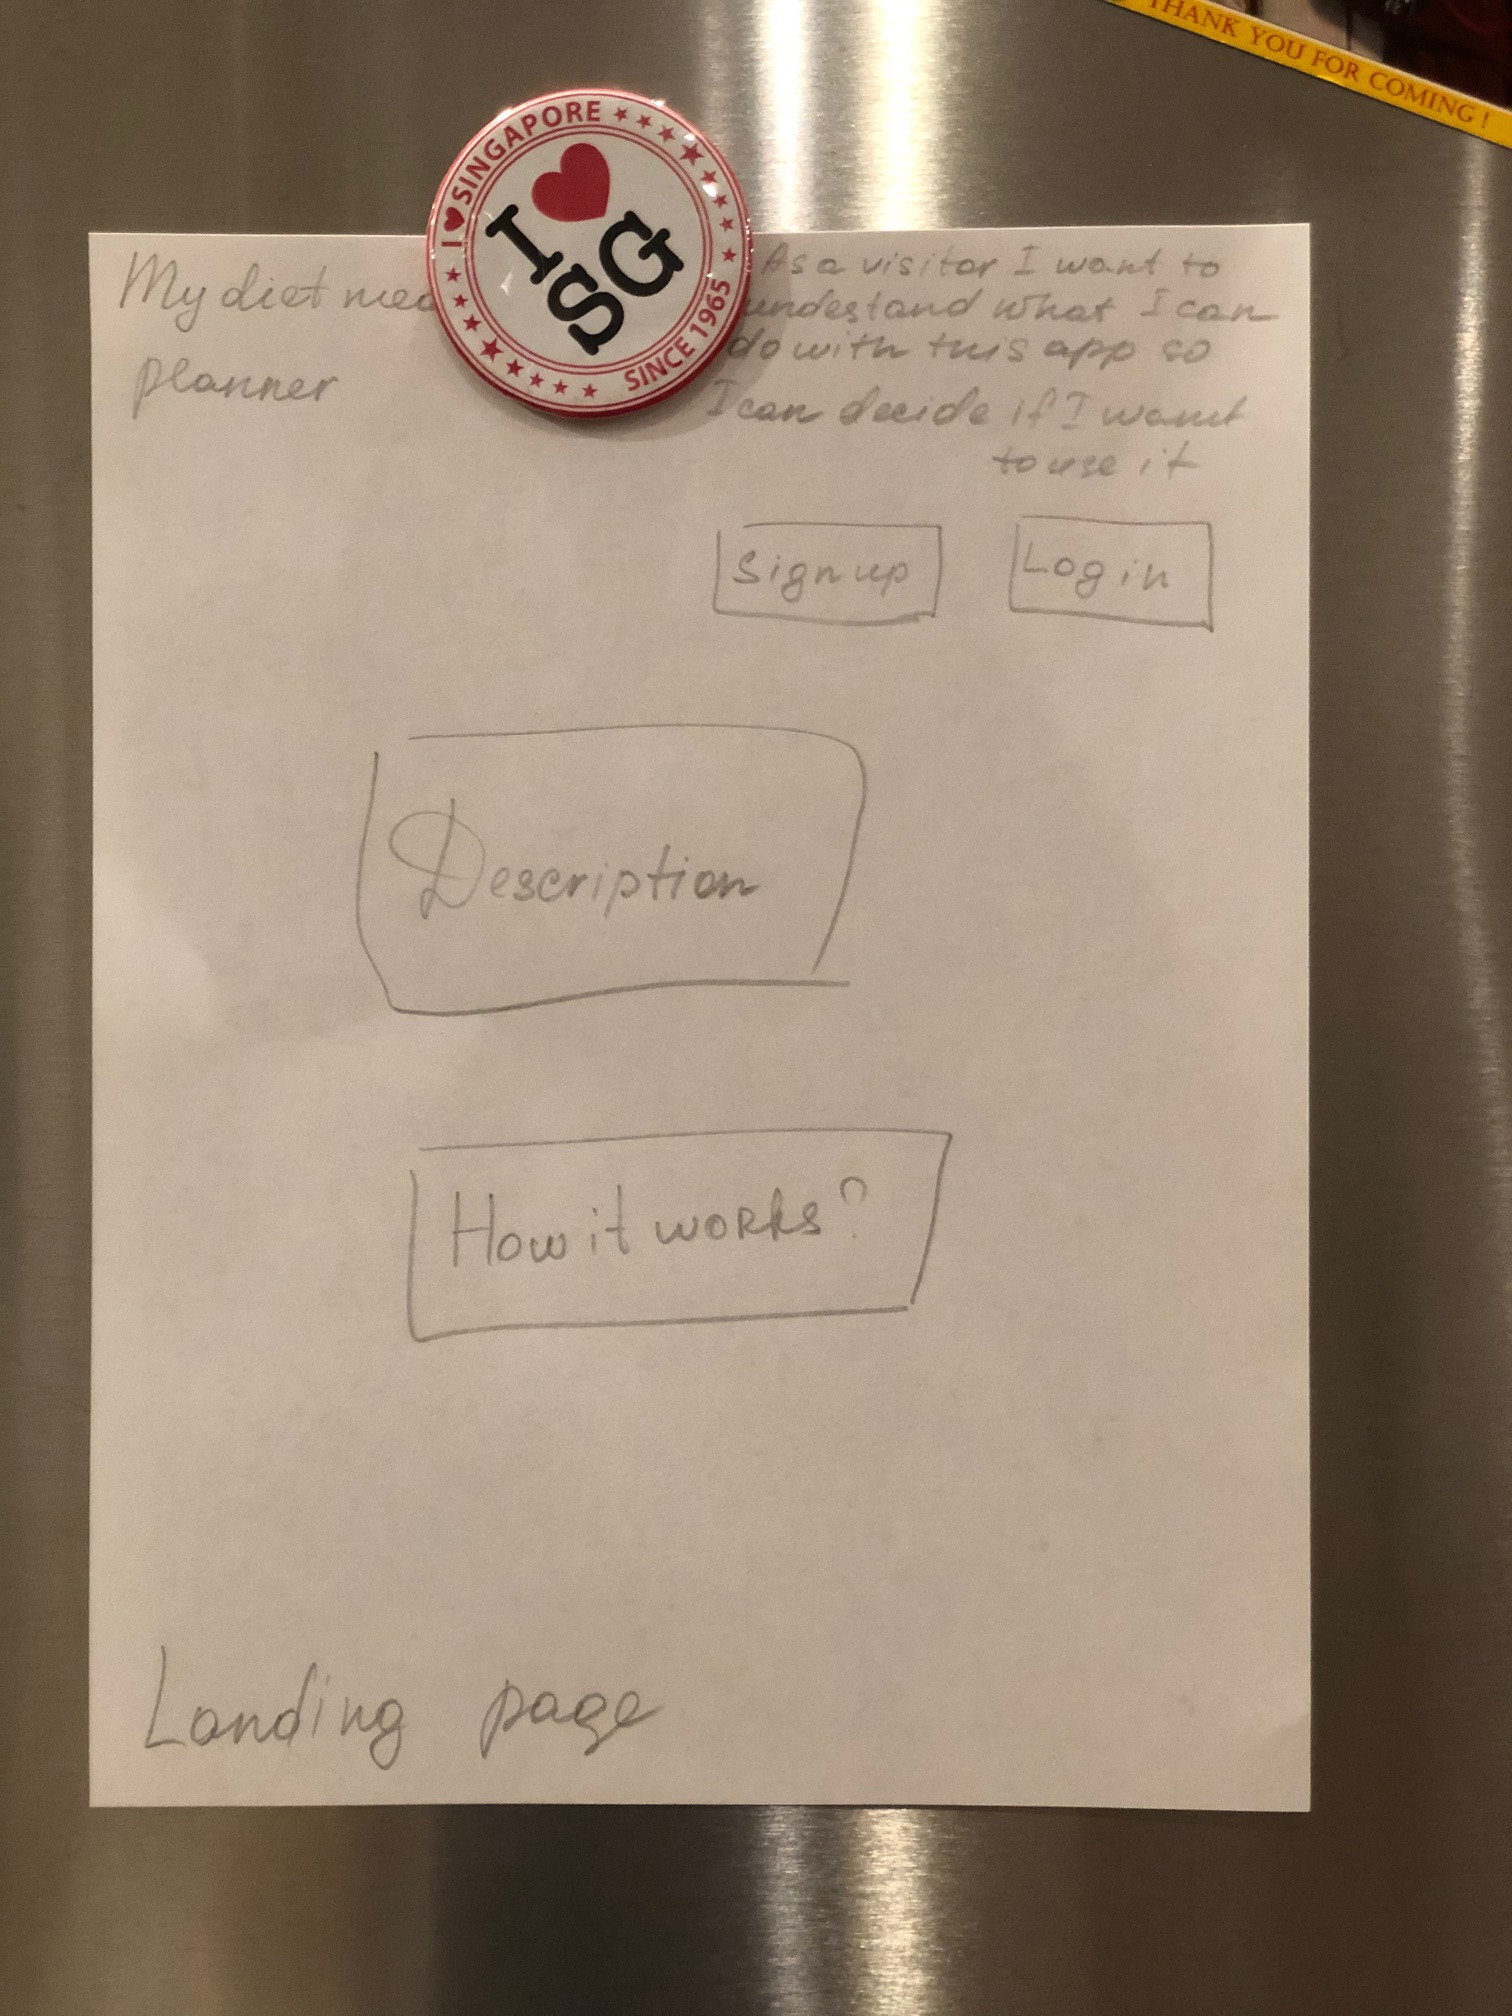 THANK YOU FOR COMING!
I ♥ SINGAPORE
I ♥
SG
SINCE 1965
My diet
planner
As a visitor I want to
undestand what I can
do with this app so
I can decide if I want
to use it
Sign up
Log in
Description
How it works?
Landing page